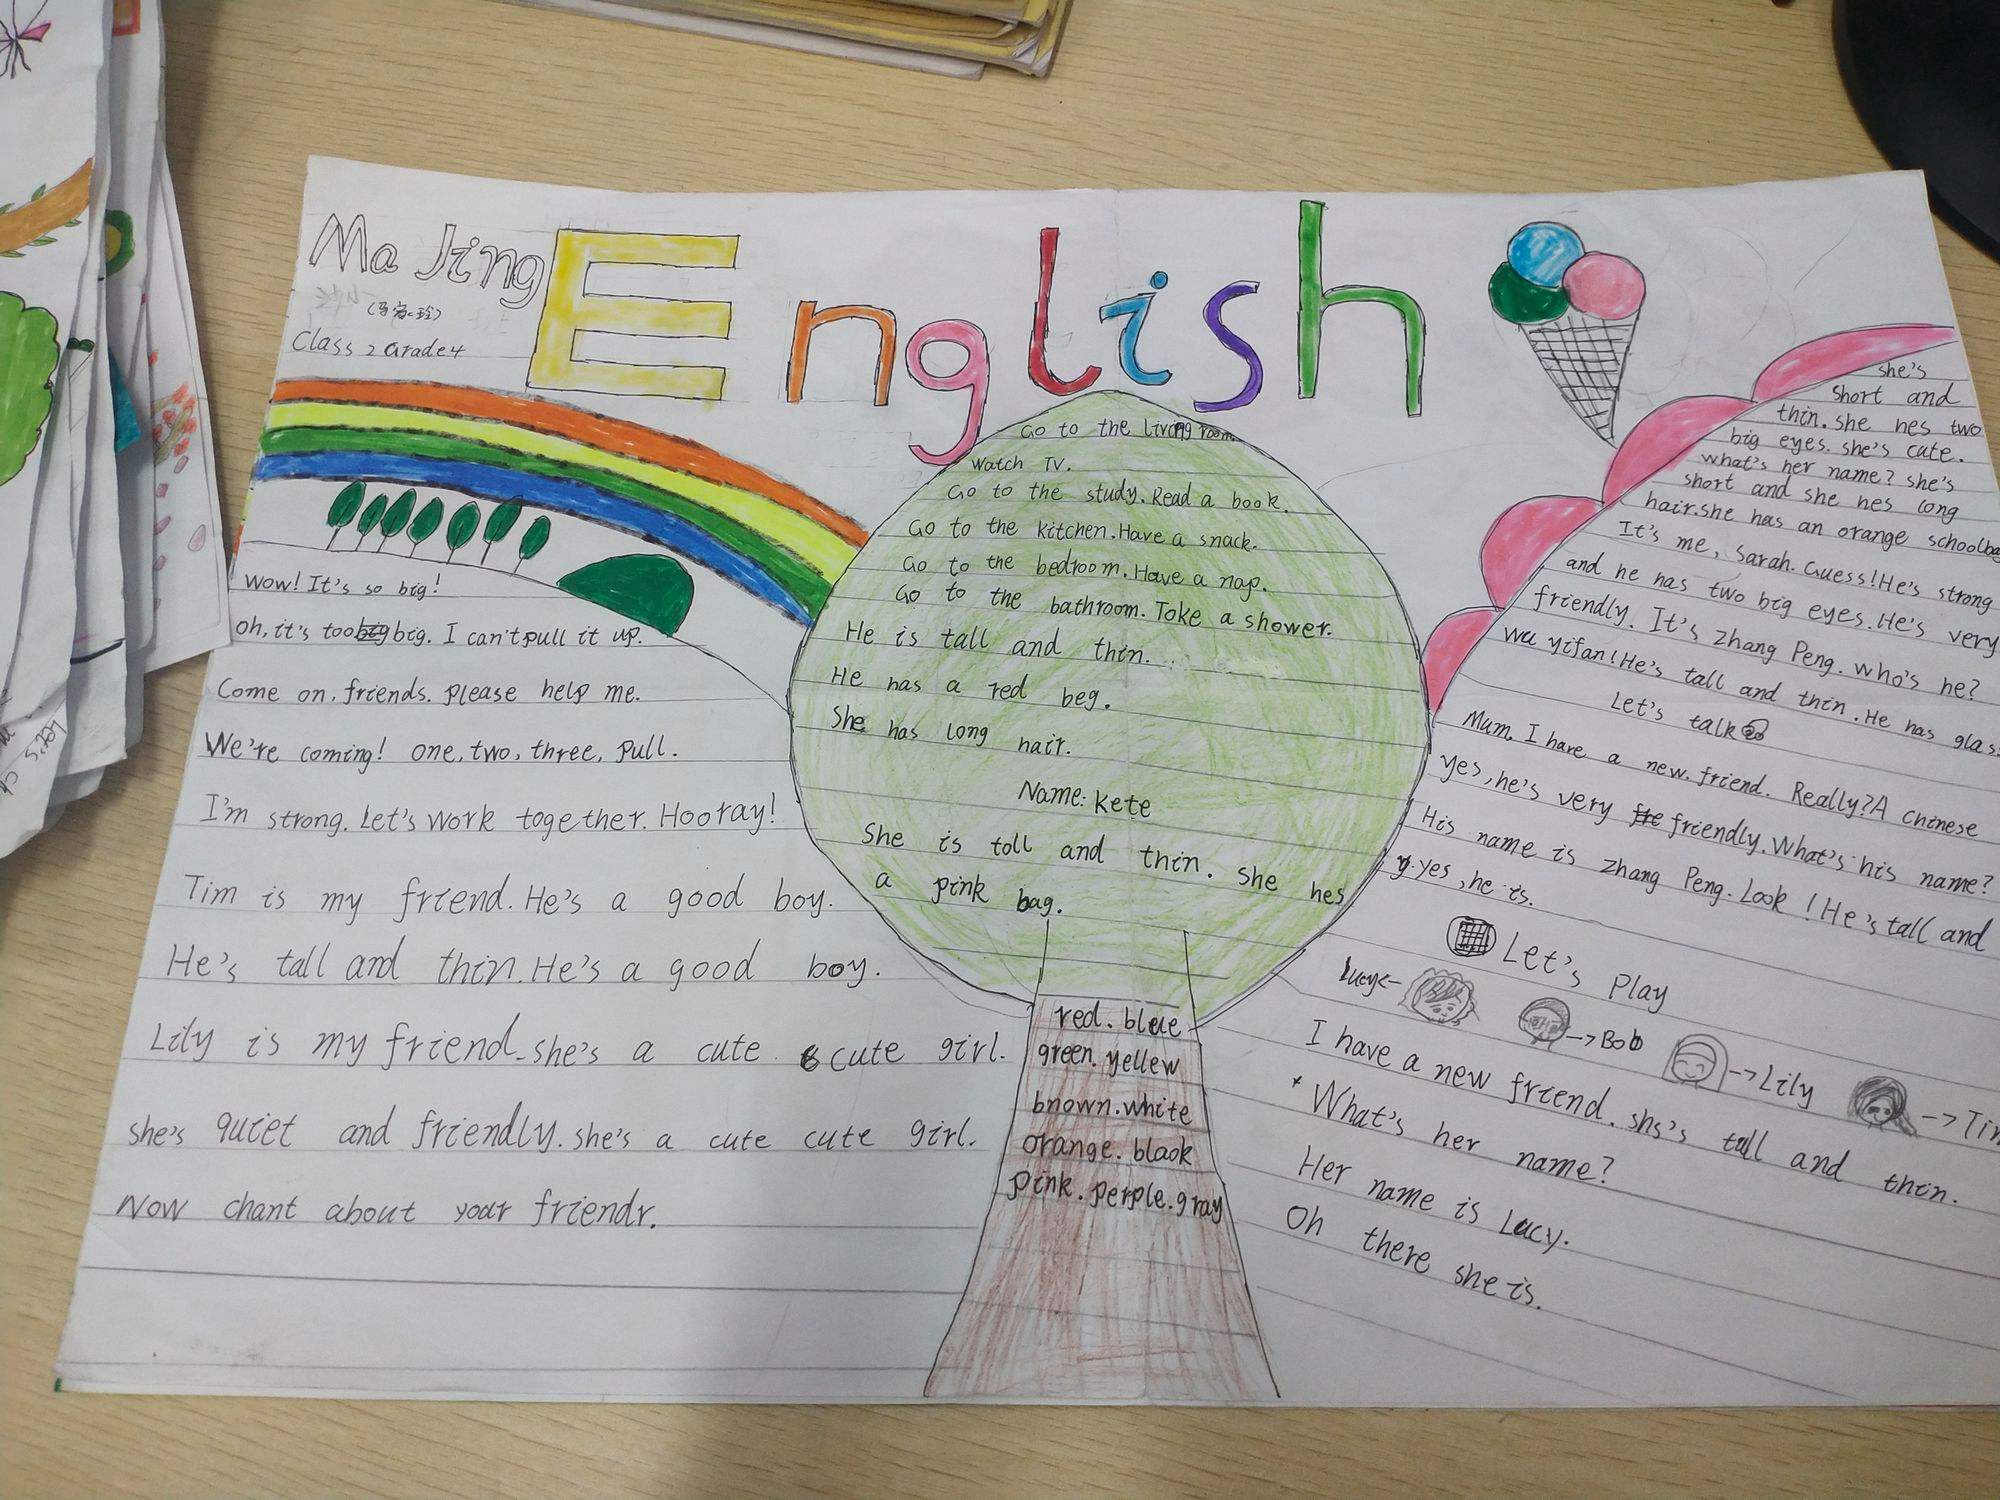 Ma Jing
English
Class 2 Grade4
Wow! It's so big!
Oh, it's too big big. I can't pull it up.
Come on, friends. please help me.
We're coming! one, two, three, pull.
I'm strong. Let's work together. Hooray!
Tim is my friend. He's a good boy.
He's tall and thin. He's a good boy.
Lily is my friend. she's a cute cute girl.
she's quiet and friendly. she's a cute cute girl.
Now chant about your friendr.
Go to the living room
Watch TV.
Go to the study. Read a book.
Go to the kitchen. Have a snack.
Go to the bedroom. Have a nap.
Go to the bathroom. Toke a shower.
He is tall and thin.
He has a red beg.
She has long hair.
Name: Kete
She is toll and thin. She hes
a pink bag.
red. blue
green. yellew
bnown. white
orange. blaok
pink. perple. gray
she's
short and
thin. she hes two
big eyes. she's cate.
what's her name? she's
short and she hes long
hair. she has an orange schoolba
It's me, Sarah. Guess! He's strong
and he has two big eyes. He's very
friendly. It's Zhang Peng. who's he?
Wu yifan! He's tall and thin. He has glas
Let's talk
Mum, I have a new friend. Really? A chinese
yes, he's very fre friendly. What's his name?
His name is Zhang Peng. Look! He's tall and
y. yes, he is.
Let's Play
Lucy
Bob
Lily
Tim
I have a new friend. shs's tall and thin.
What's her name?
Her name is Lucy.
Oh there she is.